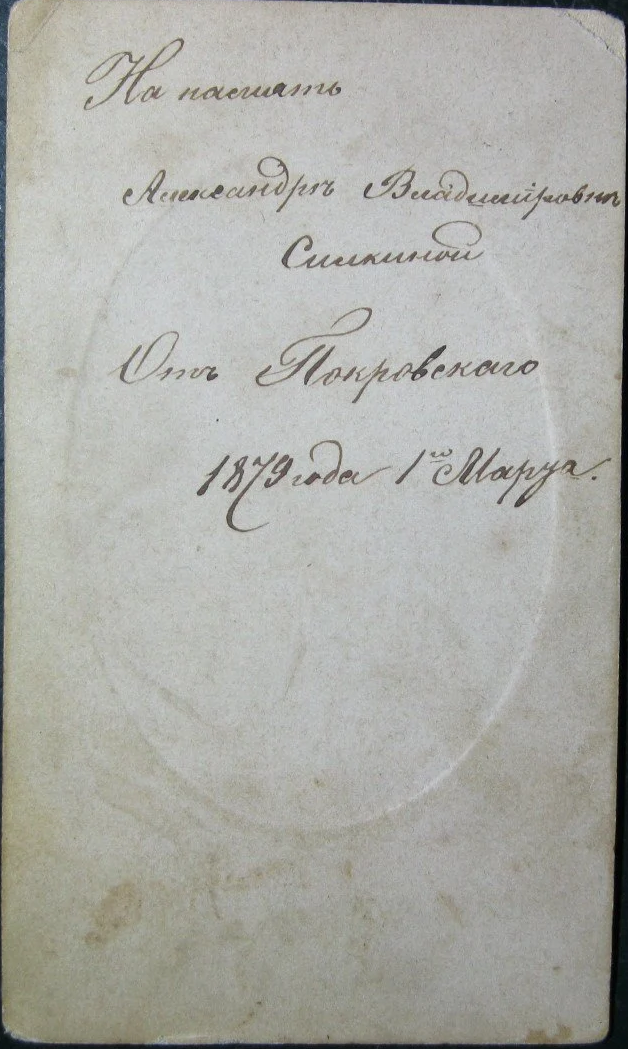 На память
Александрѣ Владимiровнѣ
Симкиной
Отъ Покровскаго
1879 года 1го Марта.